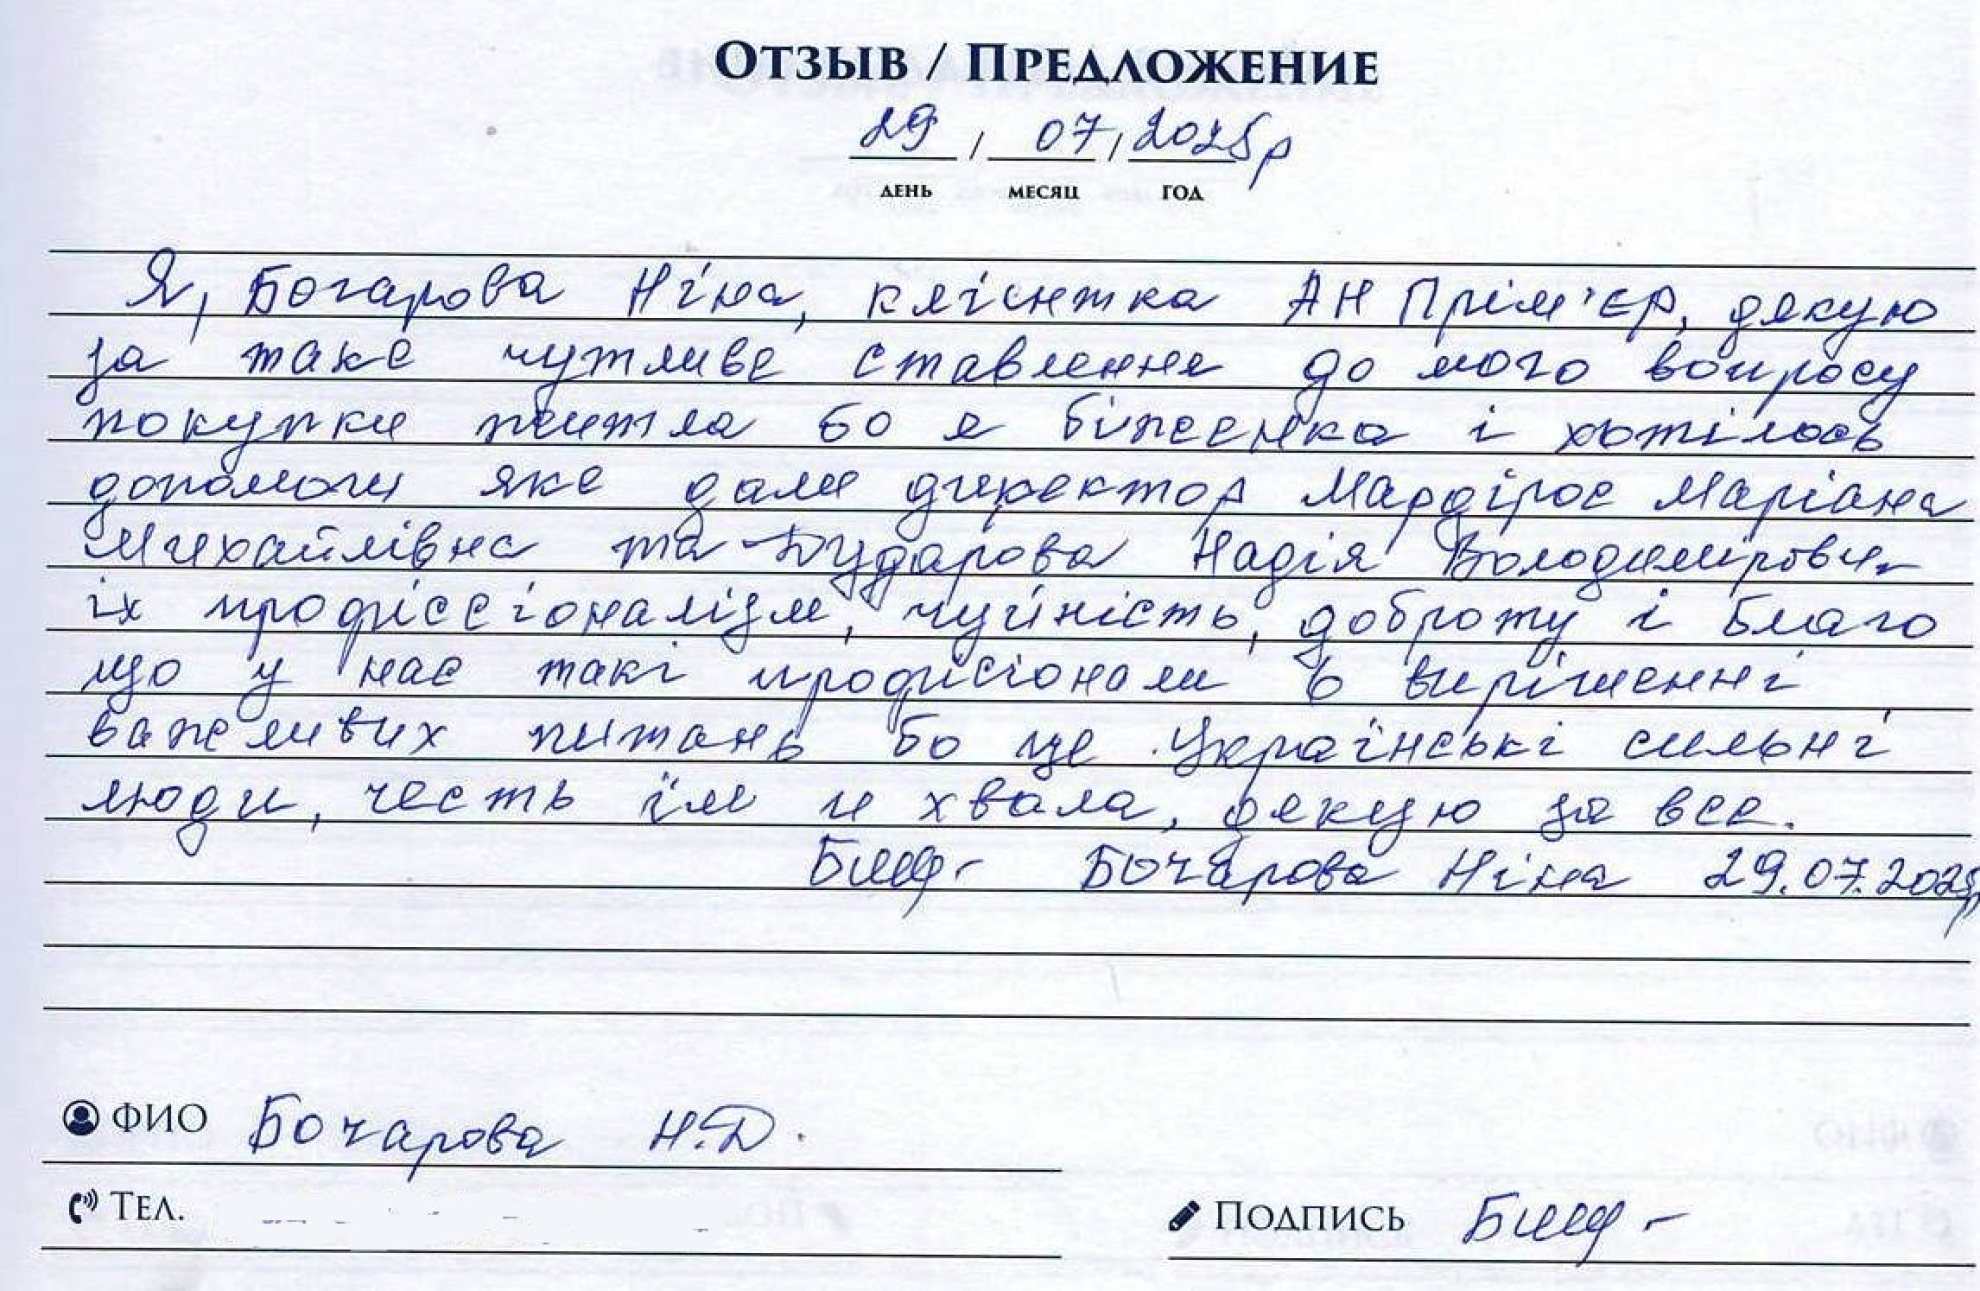 Отзыв / Предложение
29 / 07 / 2025р
день месяц год
Я, Бочарова Ніна, клієнтка АН Прім'єр, дякую
за таке чутливе ставлення до мого вопросу
покупки житла бо я біженка і хотілось
допомоги яке дали директор Мардірос Маріана
Михайлівна та Бударова Надія Володимировн
їх профіссіоналізм, чуйність, доброту і благо
що у нас такі профисіонали в вирішенні
важливих питань бо це Українські сильні
люди, честь їм и хвала, дякую за все.
Бочарова Ніна 29.07.2025р
ФИО Бочарова Н.Д.
Тел.
Подпись